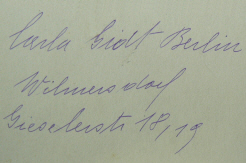 Carla Gidt Berlin
Wilmersdorf
Gieselerstr 18, 19